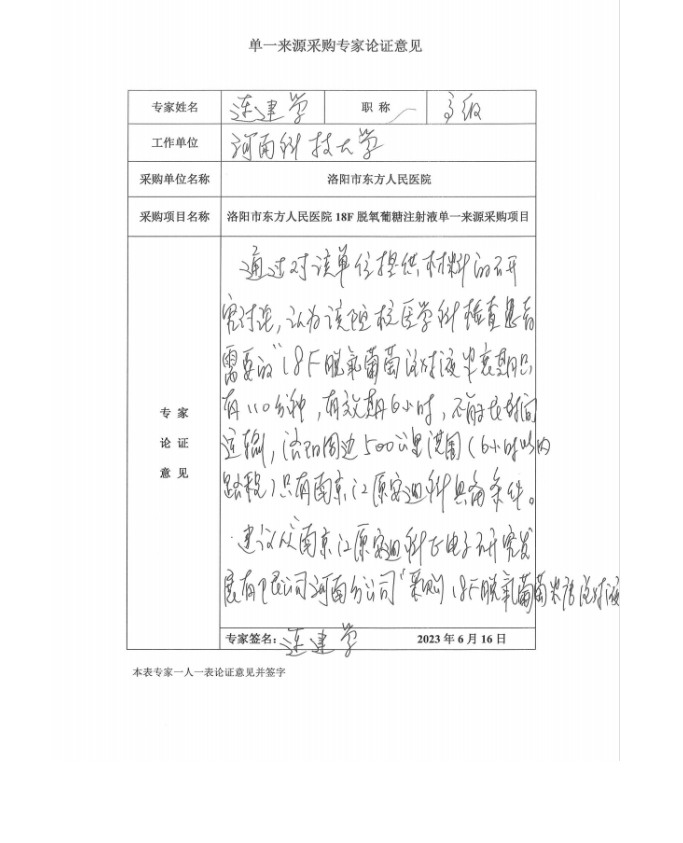 单一来源采购专家论证意见
专家姓名 连建学 职称 高级
工作单位 河南科技大学
采购单位名称 洛阳市东方人民医院
采购项目名称 洛阳市东方人民医院 18F 脱氧葡糖注射液单一来源采购项目
专家论证意见
通过对该单位提供材料的研
究讨论,认为该院核医学科检查患者
需要的“18F脱氧葡萄注射液半衰期只
有110分钟,有效期6小时,不能长时间
运输,洛阳周边500公里范围(6小时以内
路程)只有南京江原安迪科具备条件。
建议从“南京江原安迪科正电子研究发
展有限公司河南分公司”采购18F脱氧葡萄糖注射液
专家签名: 连建学 2023 年 6 月 16 日
本表专家一人一表论证意见并签字